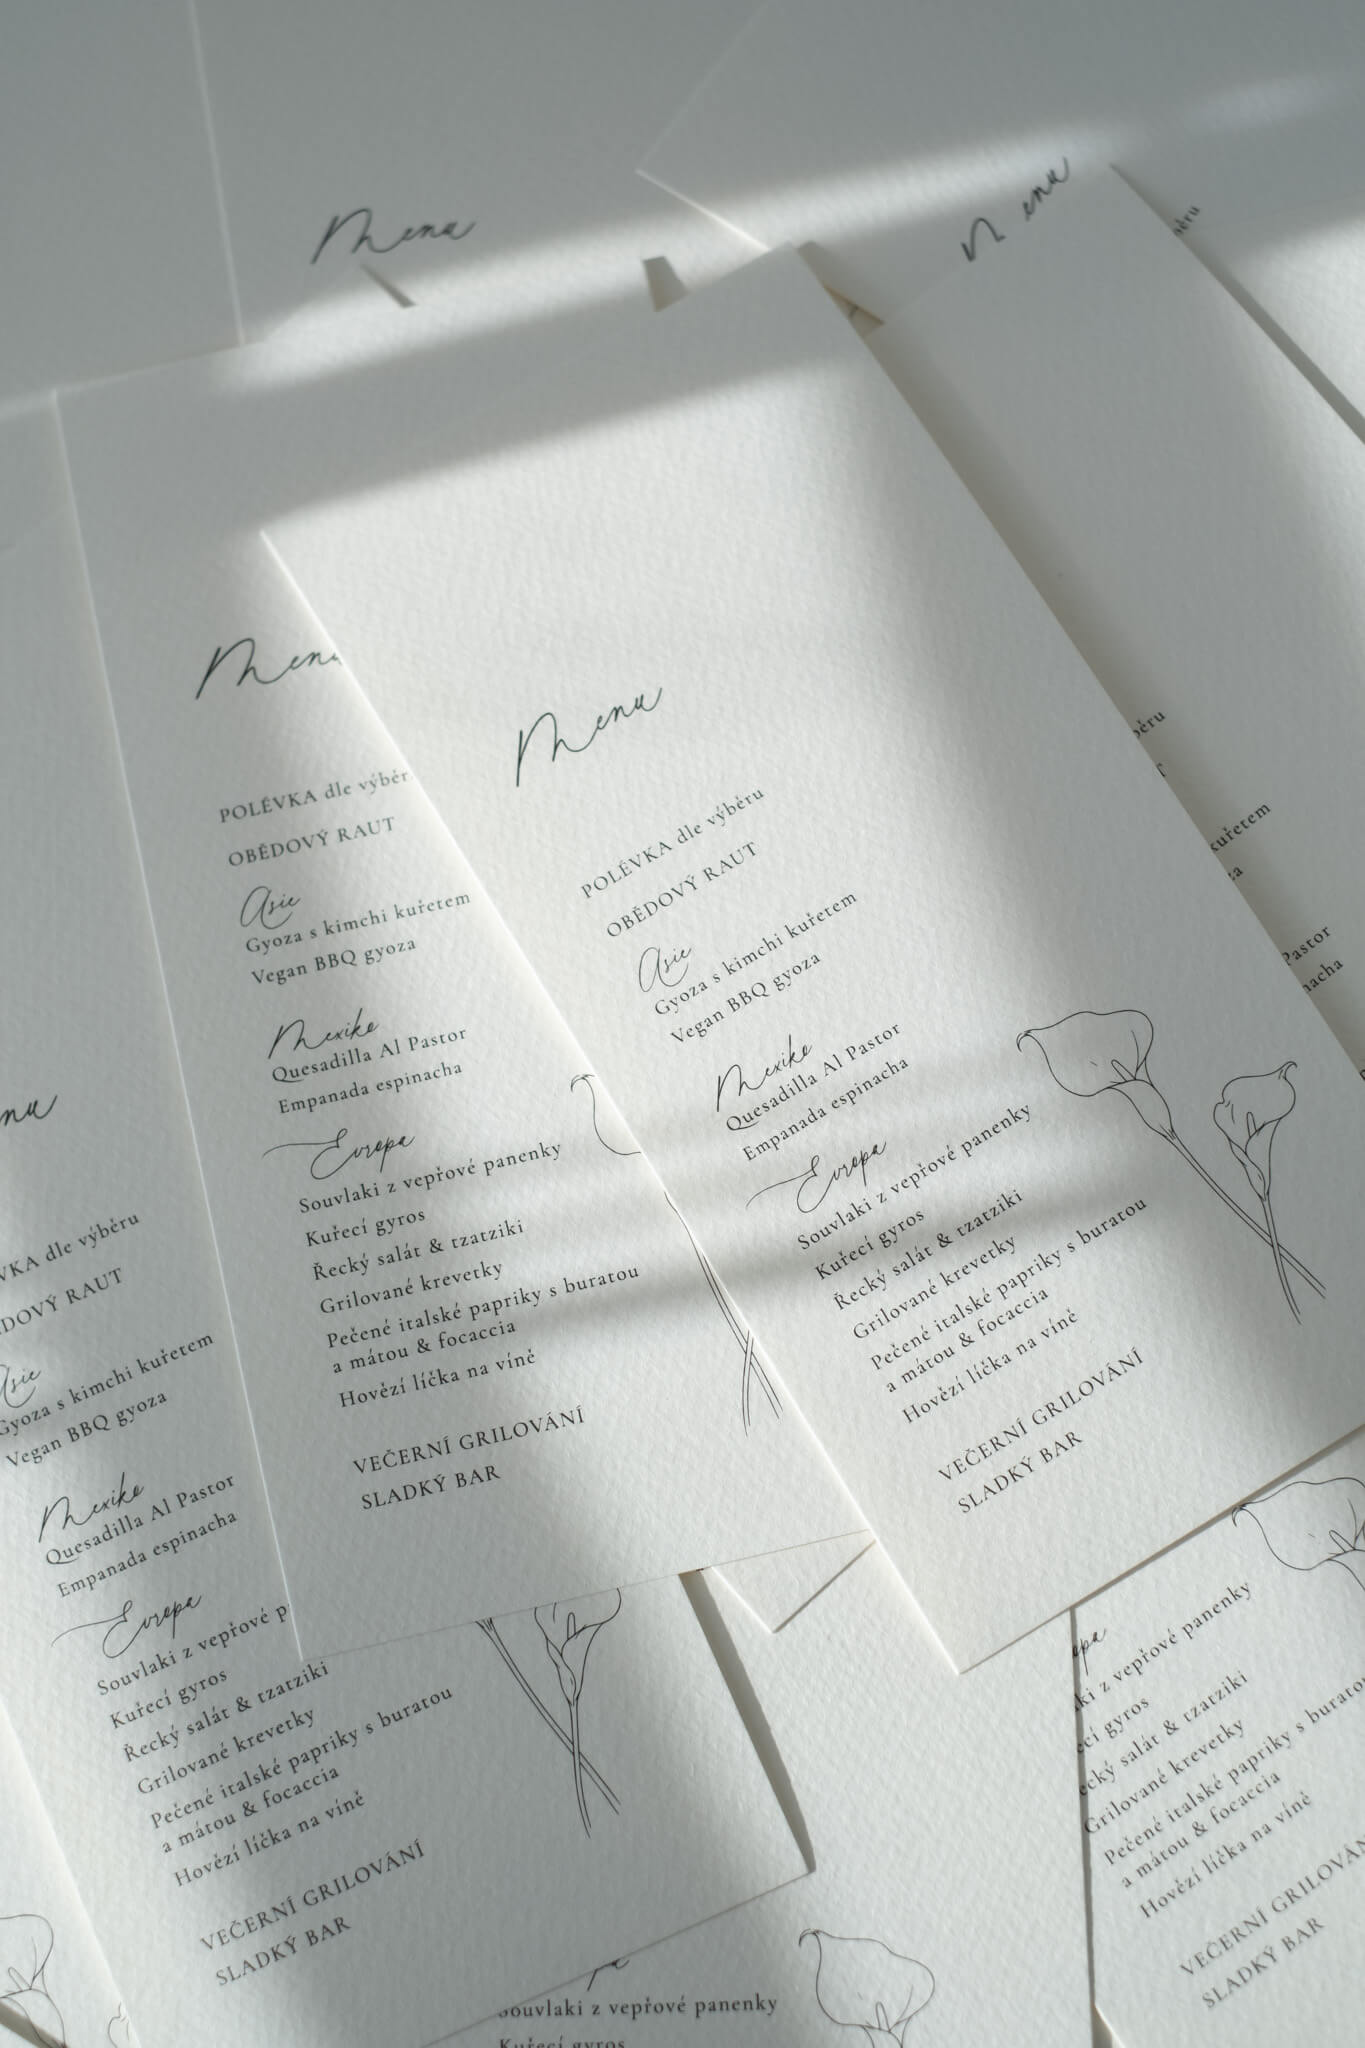 Menu
Menu
Menu
POLÉVKA dle výběr
OBĚDOVÝ RAUT
Asie
Gyoza s kimchi kuřetem
Vegan BBQ gyoza
Mexiko
Quesadilla Al Pastor
Empanada espinacha
Evropa
Souvlaki z vepřové panenky
Kuřecí gyros
Řecký salát & tzatziki
Grilované krevetky
Pečené italské papriky s buratou
a mátou & focaccia
Hovězí líčka na víně
VEČERNÍ GRILOVÁNÍ
SLADKÝ BAR
Menu
POLÉVKA dle výběru
OBĚDOVÝ RAUT
Asie
Gyoza s kimchi kuřetem
Vegan BBQ gyoza
Mexiko
Quesadilla Al Pastor
Empanada espinacha
Evropa
Souvlaki z vepřové panenky
Kuřecí gyros
Řecký salát & tzatziki
Grilované krevetky
Pečené italské papriky s buratou
a mátou & focaccia
Hovězí líčka na víně
VEČERNÍ GRILOVÁNÍ
SLADKÝ BAR
běru
běru
kuřetem
za
Pastor
nacha
nu
VKA dle výběru
DOVÝ RAUT
Asie
Gyoza s kimchi kuřetem
Vegan BBQ gyoza
Mexiko
Quesadilla Al Pastor
Empanada espinacha
Evropa
Souvlaki z vepřové p
Kuřecí gyros
Řecký salát & tzatziki
Grilované krevetky
Pečené italské papriky s buratou
a mátou & focaccia
Hovězí líčka na víně
VEČERNÍ GRILOVÁNÍ
SLADKÝ BAR
opa
ki z vepřové panenky
ecí gyros
ecký salát & tzatziki
Grilované krevetky
Pečené italské papriky s burato
a mátou & focaccia
Hovězí líčka na víně
VEČERNÍ GRILOVÁN
SLADKÝ BAR
Souvlaki z vepřové panenky
Kuřecí gyros